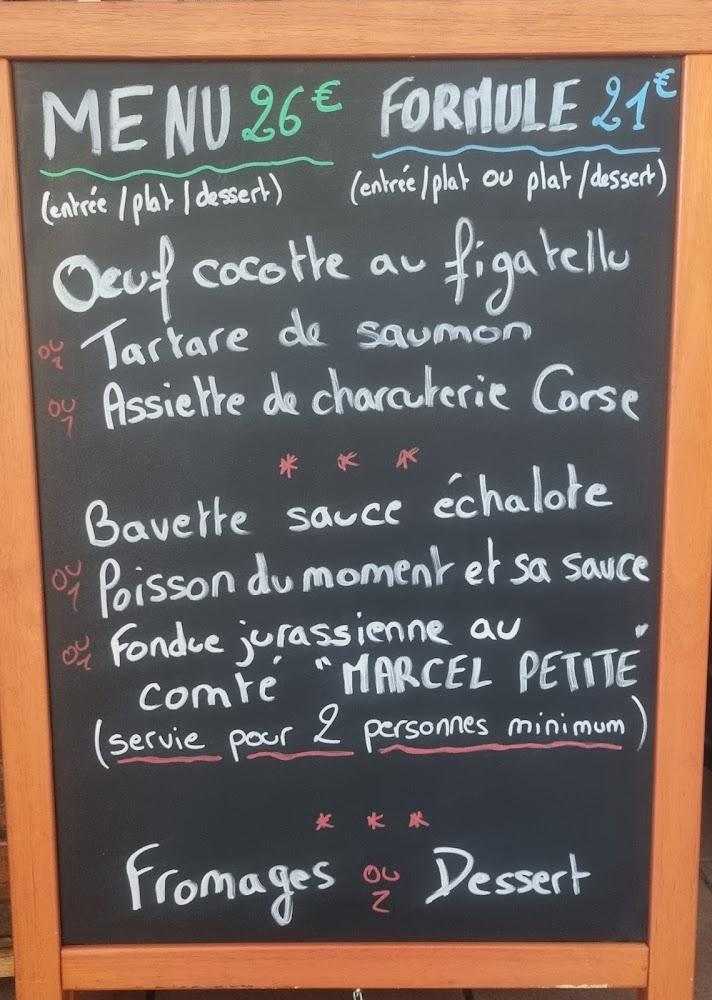 MENU 26€ FORMULE 21€
(entrée/plat/dessert) (entrée/plat ou plat/dessert)
Oeuf cocotte au figatellu
ou Tartare de saumon
ou Assiette de charcuterie Corse
* * *
Bavette sauce échalote
ou Poisson du moment et sa sauce
ou Fondue jurassienne au
comté "MARCEL PETITE"
(servie pour 2 personnes minimum)
* * *
Fromages ou Dessert